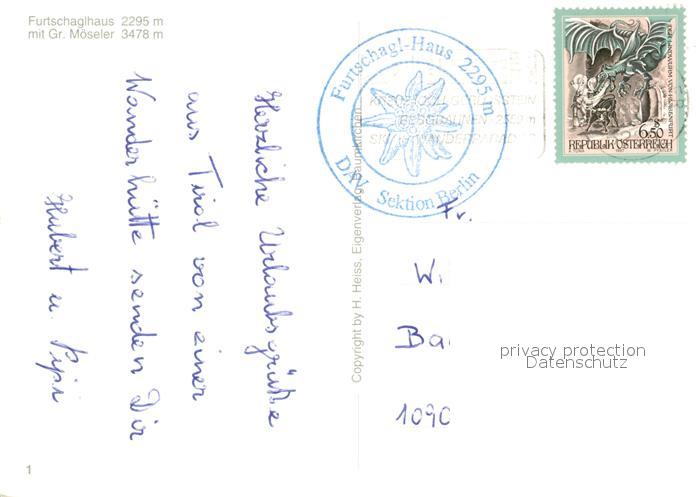 Furtschaglhaus 2295 m
mit Gr. Möseler 3478 m
Herzliche Urlaubsgrüße
aus Tirol von einer
Wanderhütte senden Dir
Hubert u. Pipsi
Copyright by H. Heiss, Eigenverlag, Baumkirchen
Furtschagl-Haus 2295 m
DAV Sektion Berlin
6.50
REPUBLIK ÖSTERREICH
Fr.
W.
Ba
1090
privacy protection
Datenschutz
1